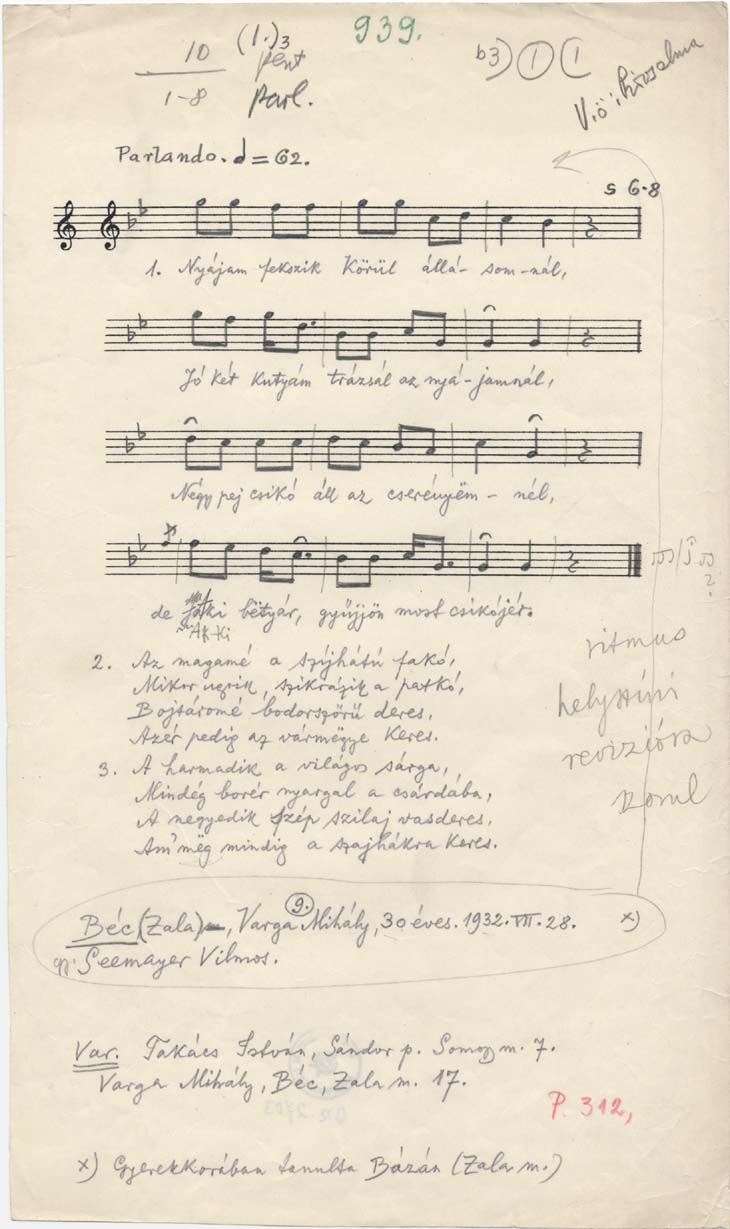 939.
10 (1.)3 pent
1-8 parl.
b3) (1) (1
V.ö: Pirosalma
Parlando. = 62.
s 6-8
1. Nyájam fekszik körül állá- som-nál,
Jó két kutyám trázsál az nyá-jamnál,
Négy pej csikó áll az cserényëm - nél,
de ki bëtyár, gyüjjön most csikójér.
Ak-ki
2. Az magamé a szíjhátú fakó,
Mikor ugrik, szikrázik a patkó,
Bojtáromé bodorszőrű deres,
Azér pedig az vármëgye keres.
3. A harmadik a világos sárga,
Mindég borér nyargal a csárdába,
A negyedik szép szilaj vasderes,
Am mëg mindig a szajhákra keres.
?
ritmus
helyszíni
revizióra
szorul
9.
Béc (Zala), Varga Mihály, 30 éves. 1932. VII. 28. x)
gy. Seemayer Vilmos.
Var. Takács István, Sándor p. Somogy m. 7.
Varga Mihály, Béc, Zala m. 17.
P. 312,
x) Gyerekkorában tanulta Bázán (Zala m.)